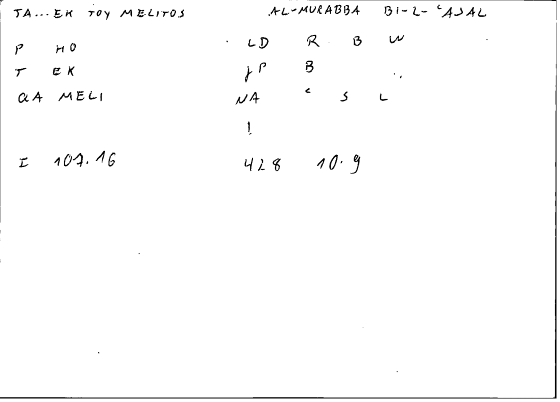 TA...EK TOY MELITOS AL-MURABBA BI-L-ʿASAL
P HO LD R B W
T EK JP B
QA MELI NA ʿ S L
!
I 107.16 428 10.9